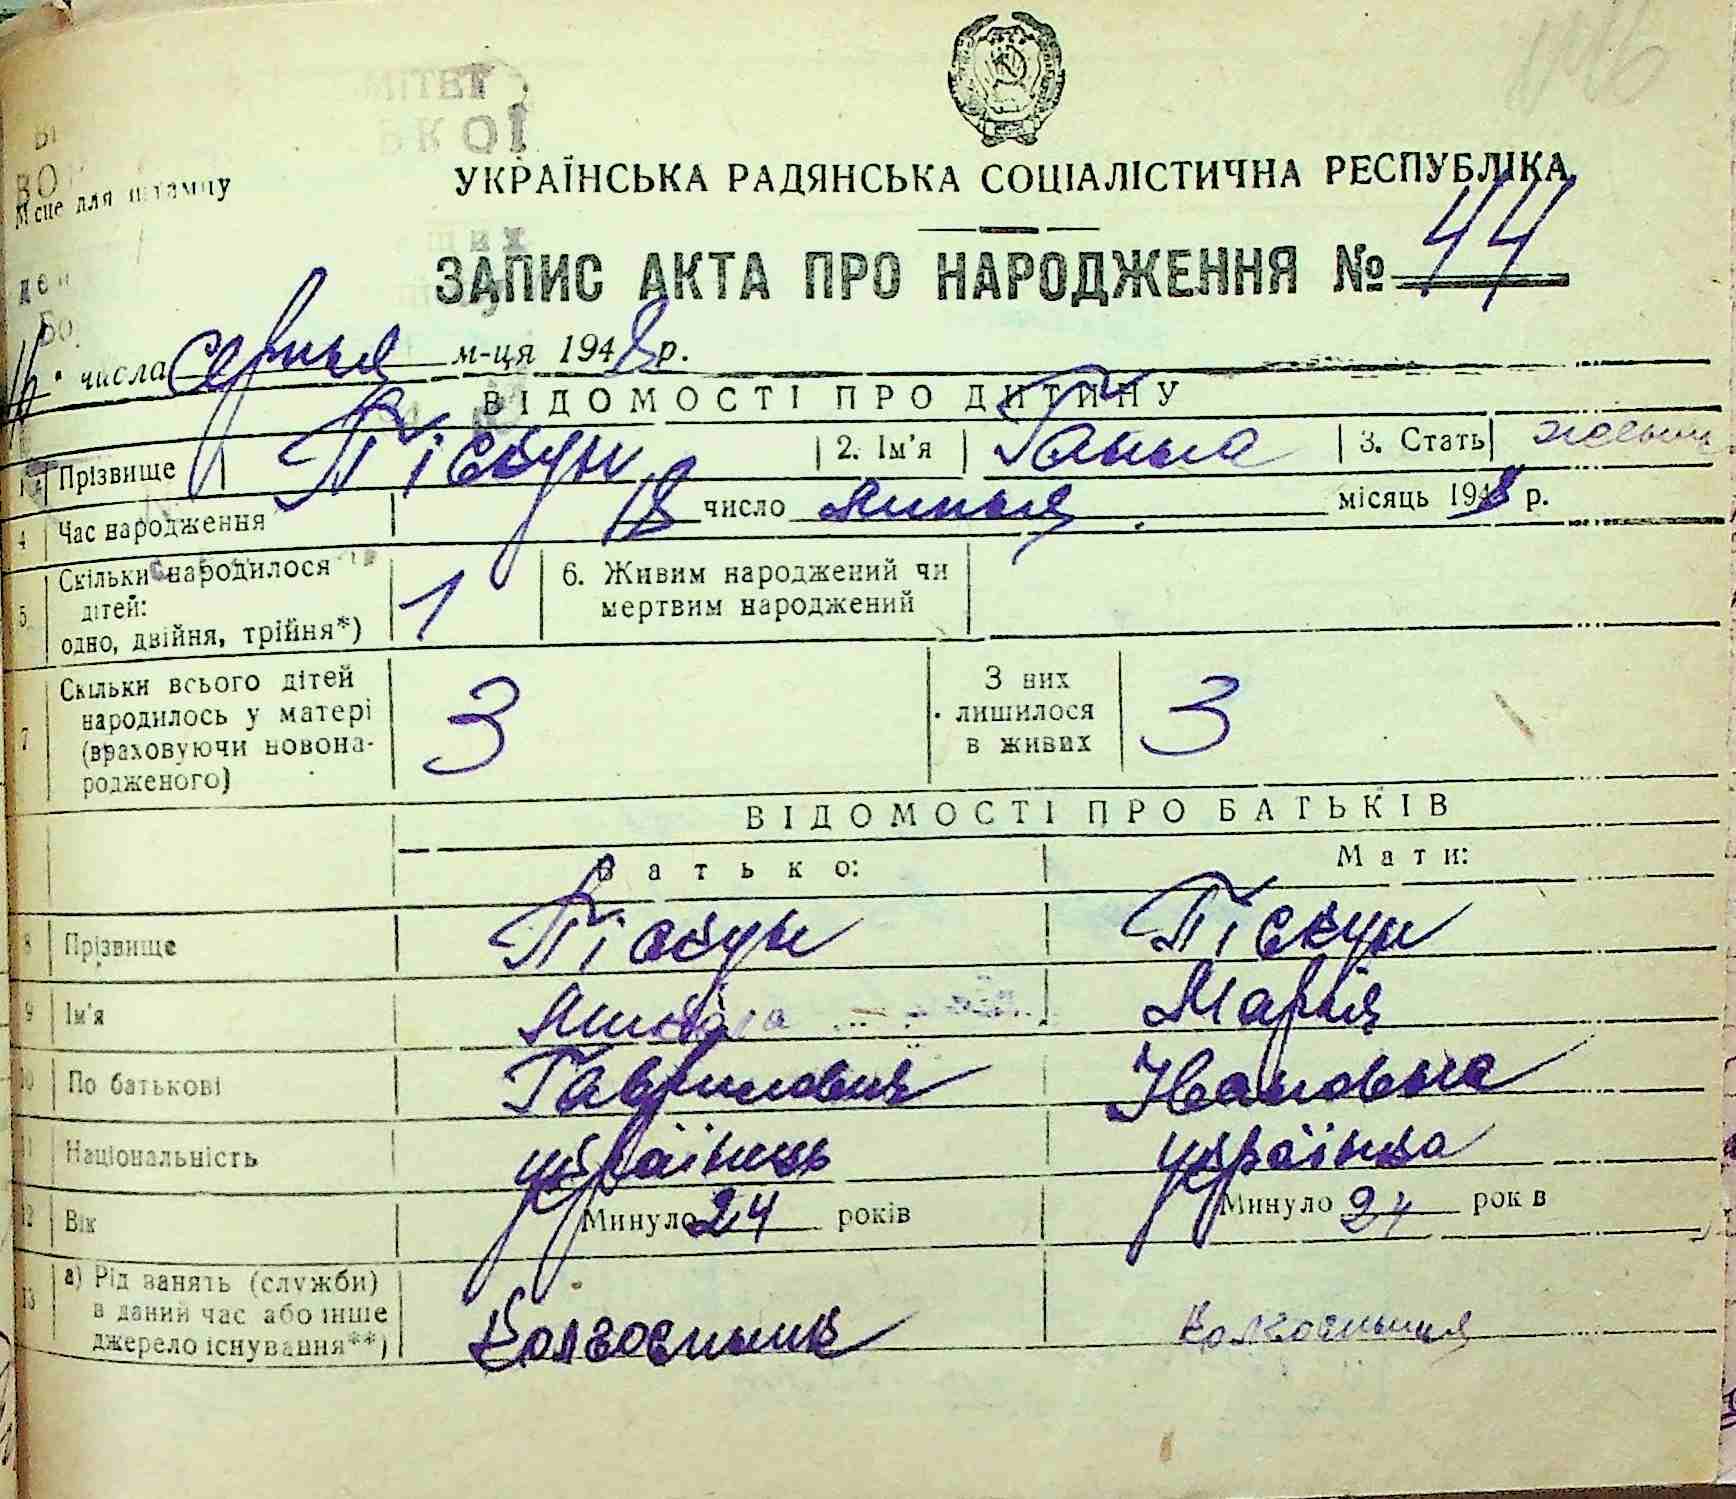 УКРАЇНСЬКА РАДЯНСЬКА СОЦІАЛІСТИЧНА РЕСПУБЛІКА
Місце для штампу
ЗАПИС АКТА ПРО НАРОДЖЕННЯ № 44
числа Серпня м-ця 1948 р.
ВІДОМОСТІ ПРО ДИТИНУ
1 Прізвище Піскун 2. Ім'я Ганна 3. Стать
4 Час народження 18 число липня місяць 1948 р.
5 Скільки народилося дітей: одно, двійня, трійня*) 1 6. Живим народжений чи мертвим народжений
7 Скільки всього дітей народилось у матері (враховуючи новонародженого) 3 З них лишилося в живих 3
ВІДОМОСТІ ПРО БАТЬКІВ
Батько: Мати:
8 Прізвище Піскун Піскун
9 Ім'я Микола Марія
10 По батькові Гаврилович Івановна
11 Національність українець українка
12 Вік Минуло 24 років Минуло 24 років
13 а) Рід занять (служби) в даний час або інше джерело існування**) Колгоспник колгоспниця